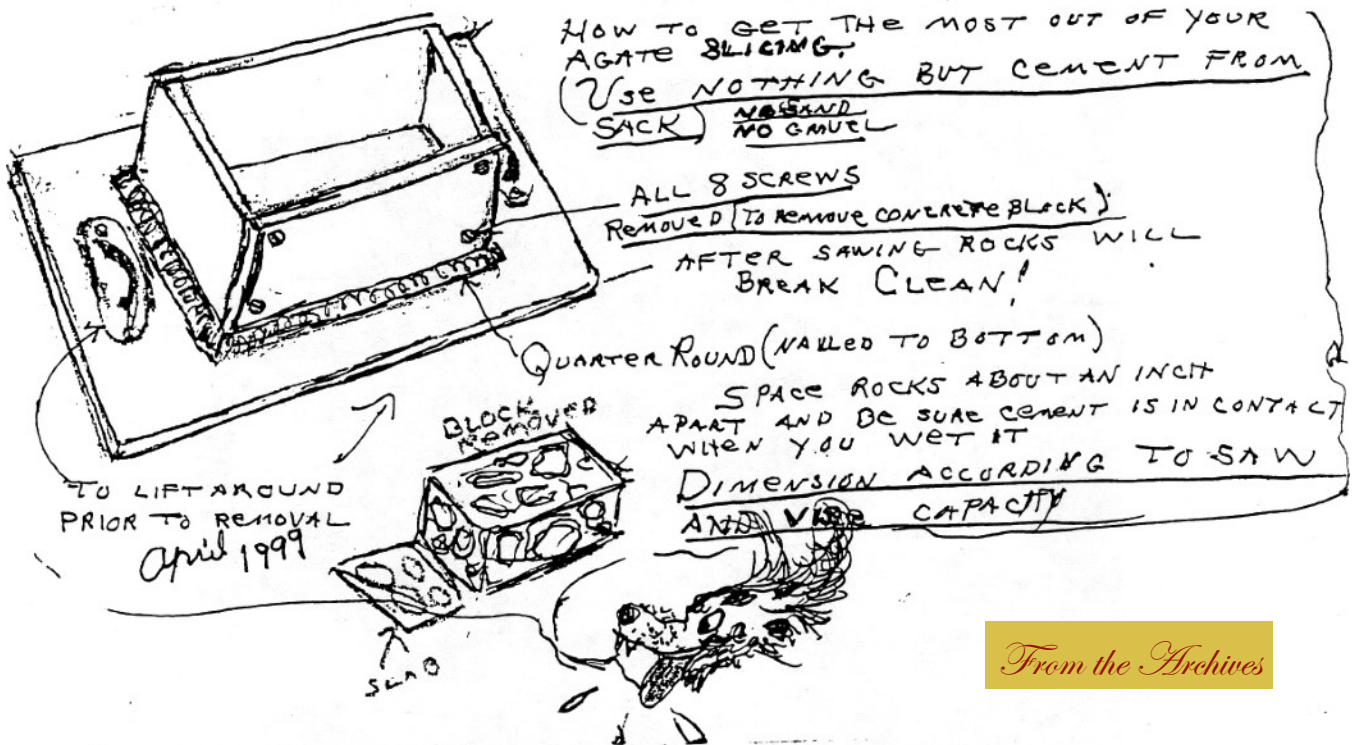 HOW TO GET THE MOST OUT OF YOUR
AGATE SLICING.
(USE NOTHING BUT CEMENT FROM
SACK) NO SAND
NO GRAVEL
ALL 8 SCREWS
REMOVED (TO REMOVE CONCRETE BLOCK)
AFTER SAWING ROCKS WILL
BREAK CLEAN!
QUARTER ROUND (NAILED TO BOTTOM)
SPACE ROCKS ABOUT AN INCH
APART AND BE SURE CEMENT IS IN CONTACT
WHEN YOU WET IT
DIMENSION ACCORDING TO SAW
AND VISE CAPACITY
BLOCK
REMOVED
TO LIFT AROUND
PRIOR TO REMOVAL
April 1999
SLAB
From the Archives